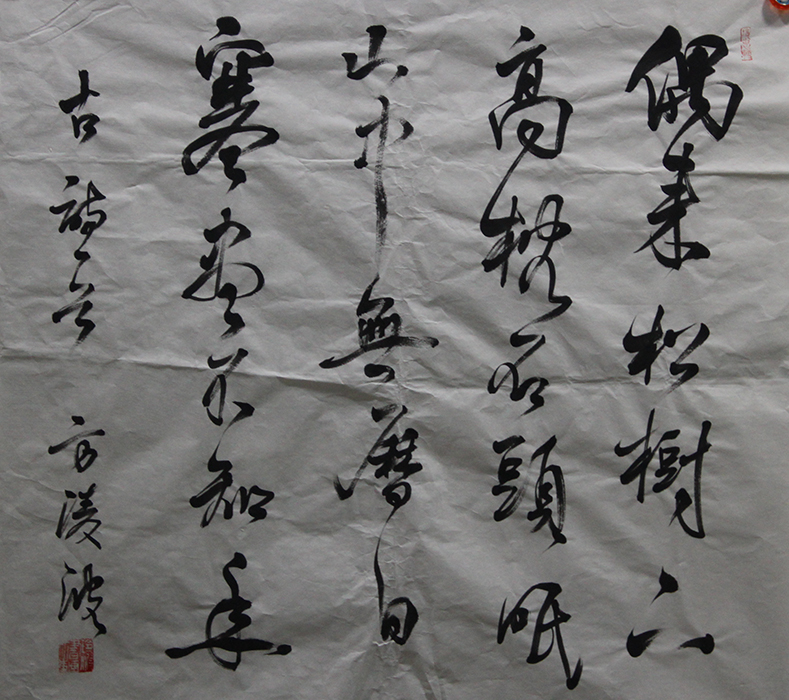 偶來松樹下
高枕石頭眠
山中無曆日
寒盡不知年
古詩一首 方淩波